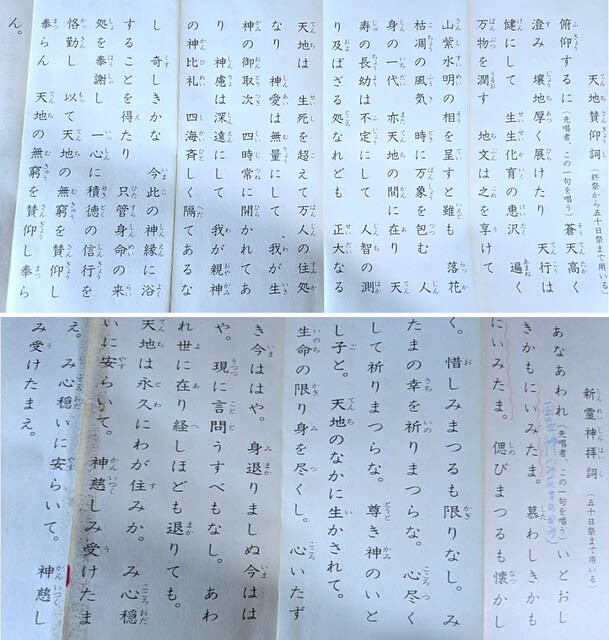 天地賛仰詞（終祭から五十日祭まで用いる）
俯仰するに（先唱者、この一句を唱う）蒼天高く
澄み　壌地厚く展けたり　天行は
健にして　生生化育の恵沢　遍く
万物を潤す　地文は之を享けて
山紫水明の相を呈すと雖も　落花
枯凋の風気　時に万象を包む　人
身の一代　亦天地の間に在り　天
寿の長幼は不定にして　人智の測
り及ばざる処なれども　正大なる
天地は　生死を超えて万人の住処
なり　神愛は無量にして　わが生き
神の御取次　四時常に開かれてあ
り　神慮は深遠にして　我が親神
の神比礼　四海斉しく隔てあるな
し　奇しきかな　今此の神縁に浴
することを得たり　只管身命の来
処を奉謝し　一心に積徳の信行を
恪勤し　以て天地の無窮を賛仰し
奉らん　天地の無窮を賛仰し奉ら
ん。
新霊神拝詞（五十日祭まで用いる）
あなあわれ（先唱者、この一句を唱う）いとおし
きかもにいみたま。慕わしきかも
にいみたま。偲びまつるも懐かし
く。惜しみまつるも限りなし。み
たまの幸を祈りまつらな。心尽く
して祈りまつらな。尊き神のいと
し子と。天地のなかに生かされて。
生命の限り身を尽くし。心いたず
き今ははや。身退りましぬ今はは
や。現に言問うすべもなし。あわ
れ世に在り経しほども退りても。
天地は永久にわが住みか。み心穏
いに安らいて。神慈しみ受けたま
え。み心穏いに安らいて。神慈し
み受けたまえ。